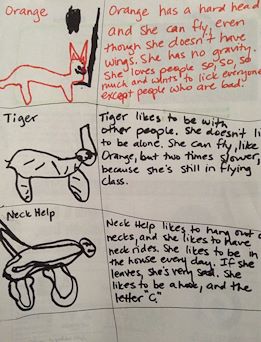 Orange
Orange has a hard head
and she can fly, even
though she doesn't have
wings. She has no gravity.
She loves people so, so, so
much and wants to lick everyone
except people who are bad.
Tiger
Tiger likes to be with
other people. She doesn't li
to be alone. She can fly, like
Orange, but two times slower,
because she's still in flying
class.
Neck Help
Neck Help likes to hang out o
necks, and she likes to have
neck rides. She likes to be in
the house every day. If she
leaves, she's very sad. She
likes to be a hook, and the
letter "C."